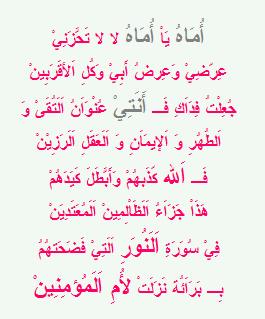 أُمَاهُ يَاْ أُمَاهُ لا لا تَحْزَنِيْ
عِرَضِيْ وَعِرِضُ أَبِيْ وَكُلِ الأَقْرَبِينَْ
جُعِلْتُ فِدَاكِ فَــ أَنَتِيْ عُنْوَانُ اَلتُقَىْ وَ
اَلطُهْرِ وَ اَلإِيمَانِ وَ اَلعَقَلِ اَلرَزِيْنْ
فَــ اَلله كَذَبهُمْ وَأَبَطَلَ كَيَدَهُمْ
هَذَاْ جَزَاءُ اَلظَالِمِينَ اَلمُعَتَدِينْ
فِيْ سُورَةِ اَلنُورِ اَلتِيْ فَضَحَتَهُمُ
بِــ بَرَائَة نَزَلَتْ لأُمِ اَلمُؤمِنِينْ